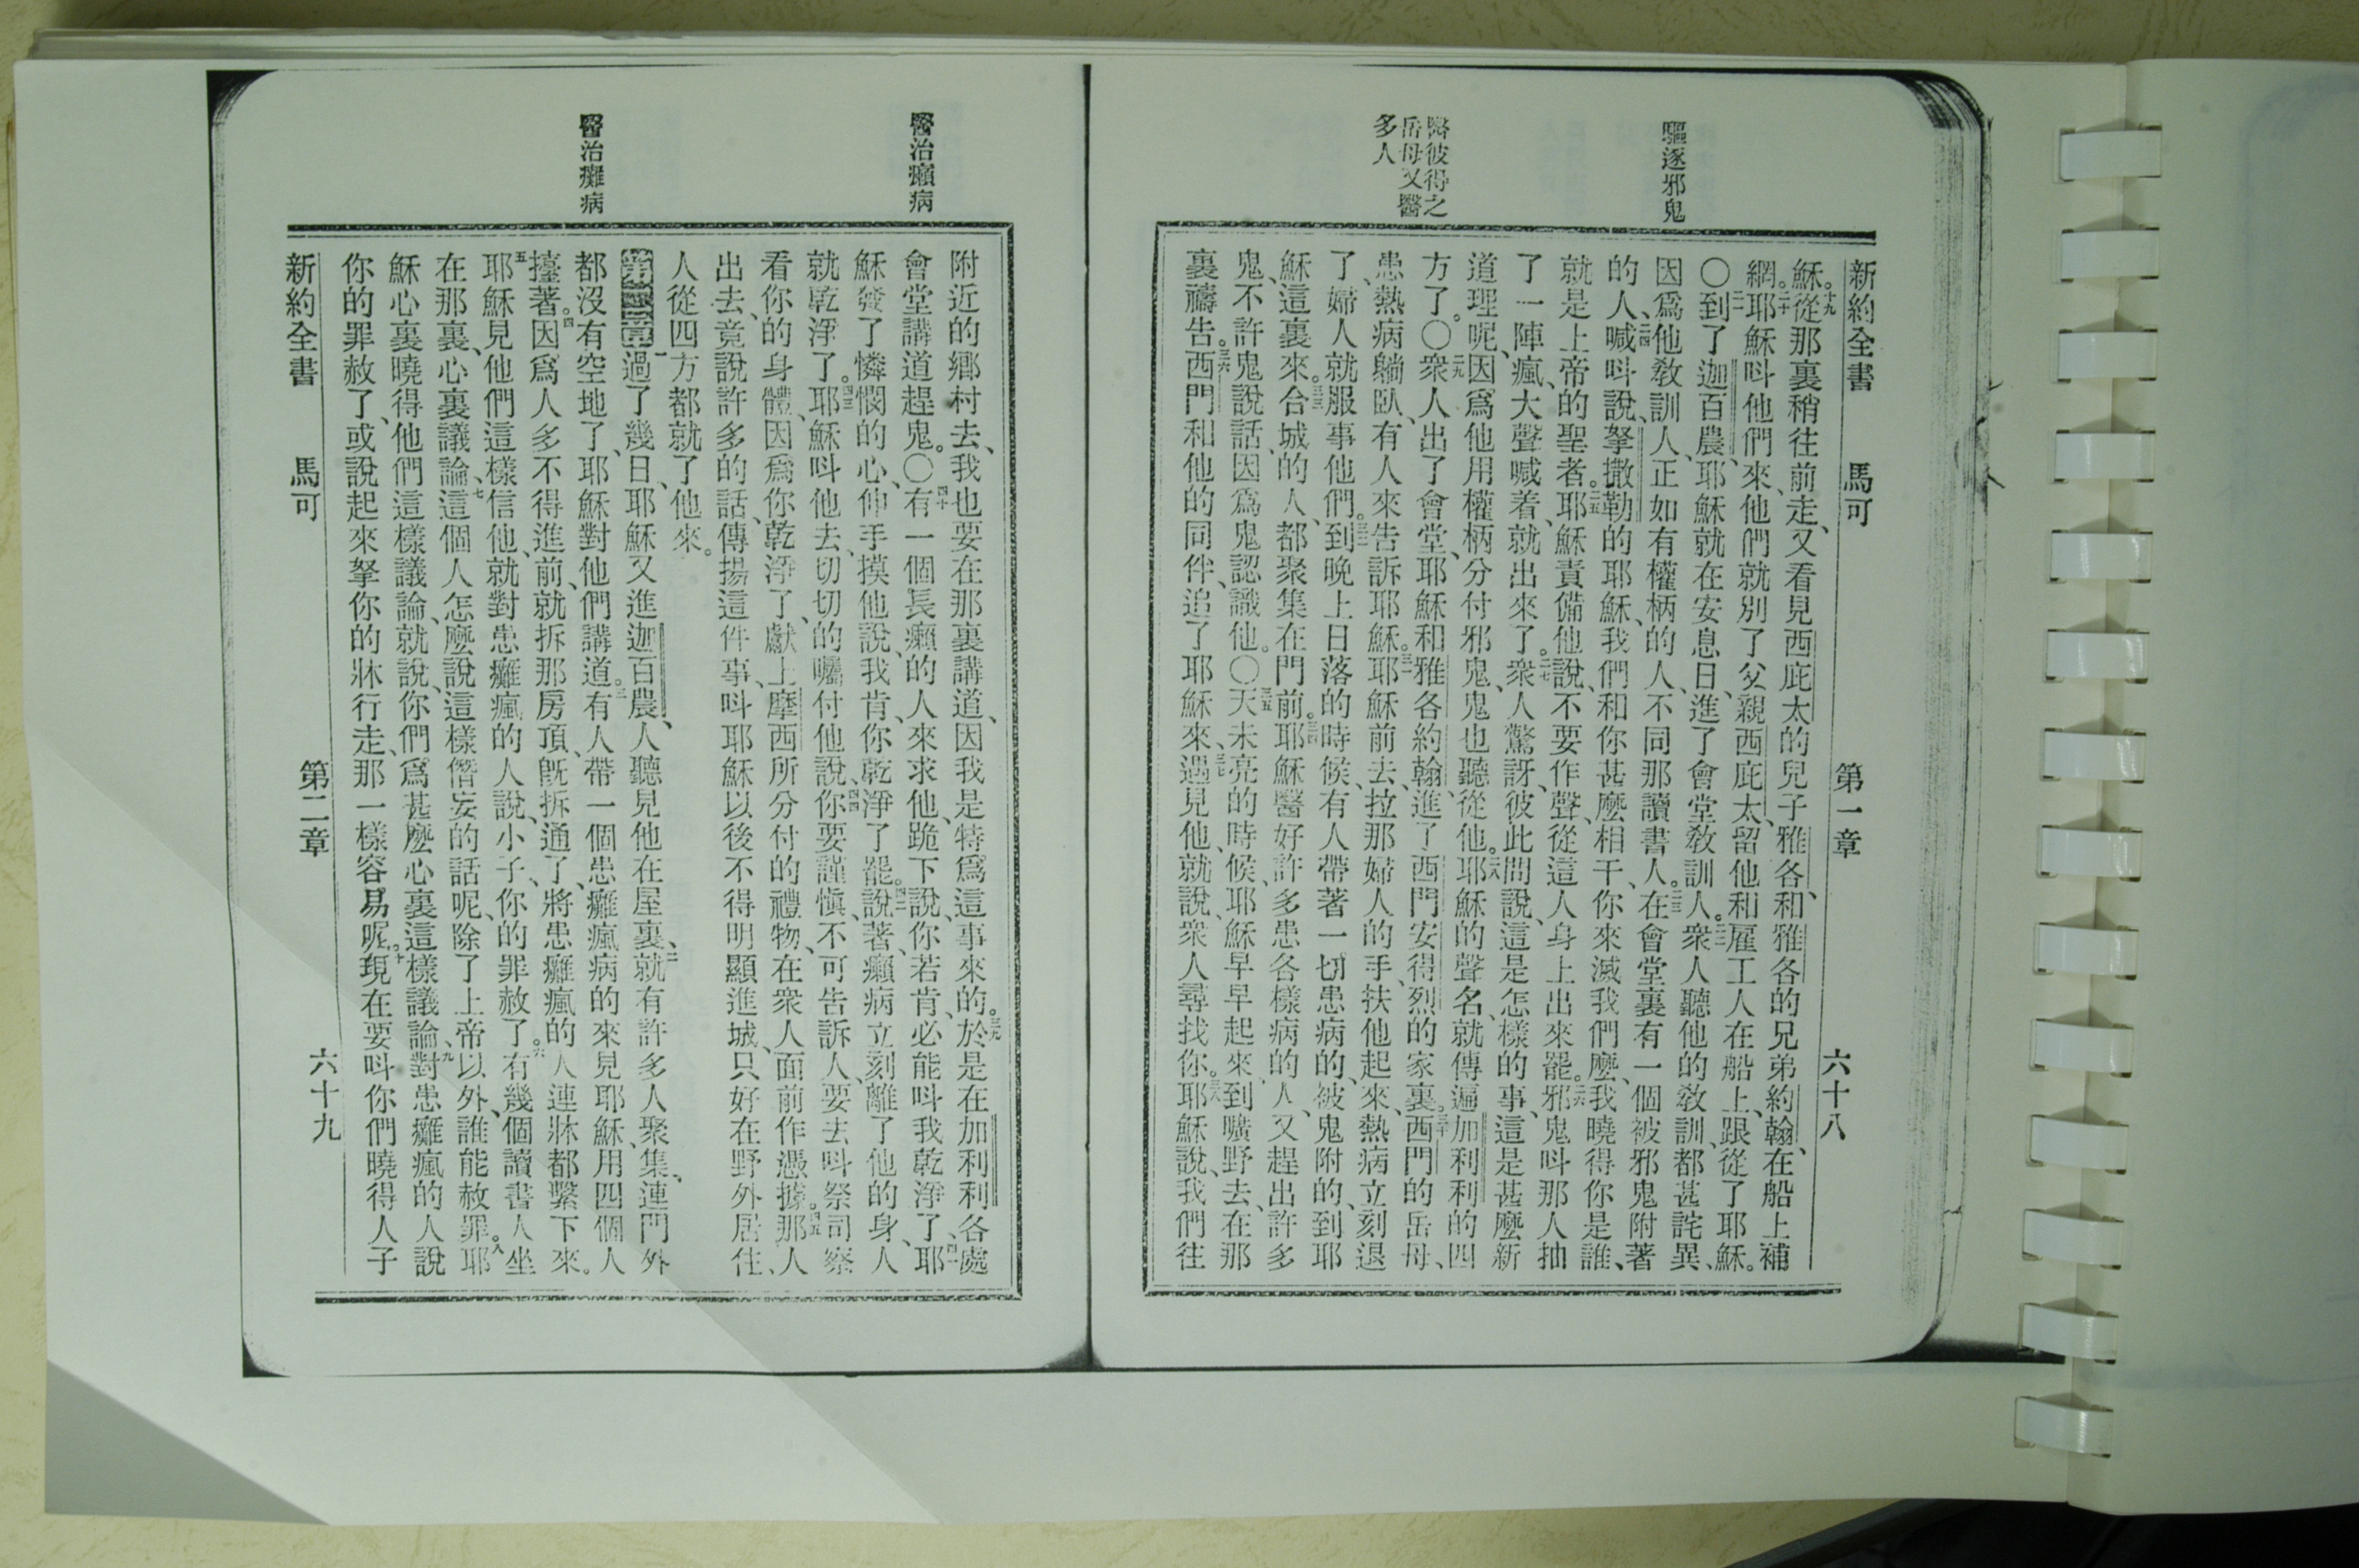 驅逐邪鬼
醫彼得之
岳母又醫
多人
新約全書 馬可 第一章 六十八
穌。十九從那裏稍往前走、又看見西庇太的兒子雅各、和雅各的兄弟約翰、在船上補
網。二十耶穌呌他們來、他們就別了父親西庇太、留他和雇工人在船上、跟從了耶穌。
〇二一到了迦百農、耶穌就在安息日、進了會堂教訓人。二二衆人聽他的教訓、都甚詫異、
因爲他教訓人、正如有權柄的人、不同那讀書人。二三在會堂裏有一個被邪鬼附著
的人、二四喊呌說、拏撒勒的耶穌、我們和你甚麼相干、你來滅我們麼、我曉得你是誰、
就是上帝的聖者。二五耶穌責備他說、不要作聲、從這人身上出來罷。二六邪鬼呌那人抽
了一陣瘋、大聲喊着、就出來了。二七衆人驚訝、彼此問說、這是怎樣的事、這是甚麼新
道理呢、因爲他用權柄分付邪鬼、鬼也聽從他。二八耶穌的聲名、就傳遍加利利的四
方了。〇二九衆人出了會堂、耶穌和雅各約翰、進了西門安得烈的家裏。三十西門的岳母、
患熱病躺臥、有人來告訴耶穌。三一耶穌前去、拉那婦人的手、扶他起來、熱病立刻退
了、婦人就服事他們。三二到晚上日落的時候、有人帶著一切患病的、被鬼附的、到耶
穌這裏來。三三合城的人、都聚集在門前。三四耶穌醫好許多患各樣病的人、又趕出許多
鬼、不許鬼說話、因爲鬼認識他。〇三五天未亮的時候、耶穌早早起來、到曠野去、在那
裏禱告。三六西門和他的同伴、追了耶穌來、三七遇見他、就說、衆人尋找你。三八耶穌說、我們往
醫治癩病
醫治癱病
附近的鄉村去、我也要在那裏講道、因我是特爲這事來的。三九於是在加利利各處
會堂講道趕鬼。〇四十有一個長癩的人來求他、跪下說、你若肯、必能呌我乾淨了、四一耶
穌發了憐憫的心、伸手摸他說、我肯、你乾淨了罷。四二說著、癩病立刻離了他的身、人
就乾淨了。四三耶穌呌他去、切切的囑付他說、四四你要謹愼、不可告訴人、要去呌祭司察
看你的身體、因爲你乾淨了、獻上摩西所分付的禮物、在衆人面前作憑據。四五那人
出去、竟說許多的話、傳揚這件事、呌耶穌以後不得明顯進城、只好在野外居住、
人從四方都就了他來。
第二章 一過了幾日、耶穌又進迦百農、人聽見他在屋裏、二就有許多人聚集、連門外
都沒有空地了、耶穌對他們講道。三有人帶一個患癱瘋病的來見耶穌、用四個人
擡著。四因爲人多不得進前、就拆那房頂、旣拆通了、將患癱瘋的人連牀都繫下來。
五耶穌見他們這樣信他、就對患癱瘋的人說、小子、你的罪赦了。六有幾個讀書人坐
在那裏、心裏議論、七這個人怎麼說這樣僭妄的話呢、除了上帝以外、誰能赦罪。八耶
穌心裏曉得他們這樣議論、就說、你們爲甚麼心裏這樣議論、九對患癱瘋的人說
你的罪赦了、或說起來拏你的牀行走、那一樣容易呢。十現在要呌你們曉得人子
新約全書 馬可 第二章 六十九